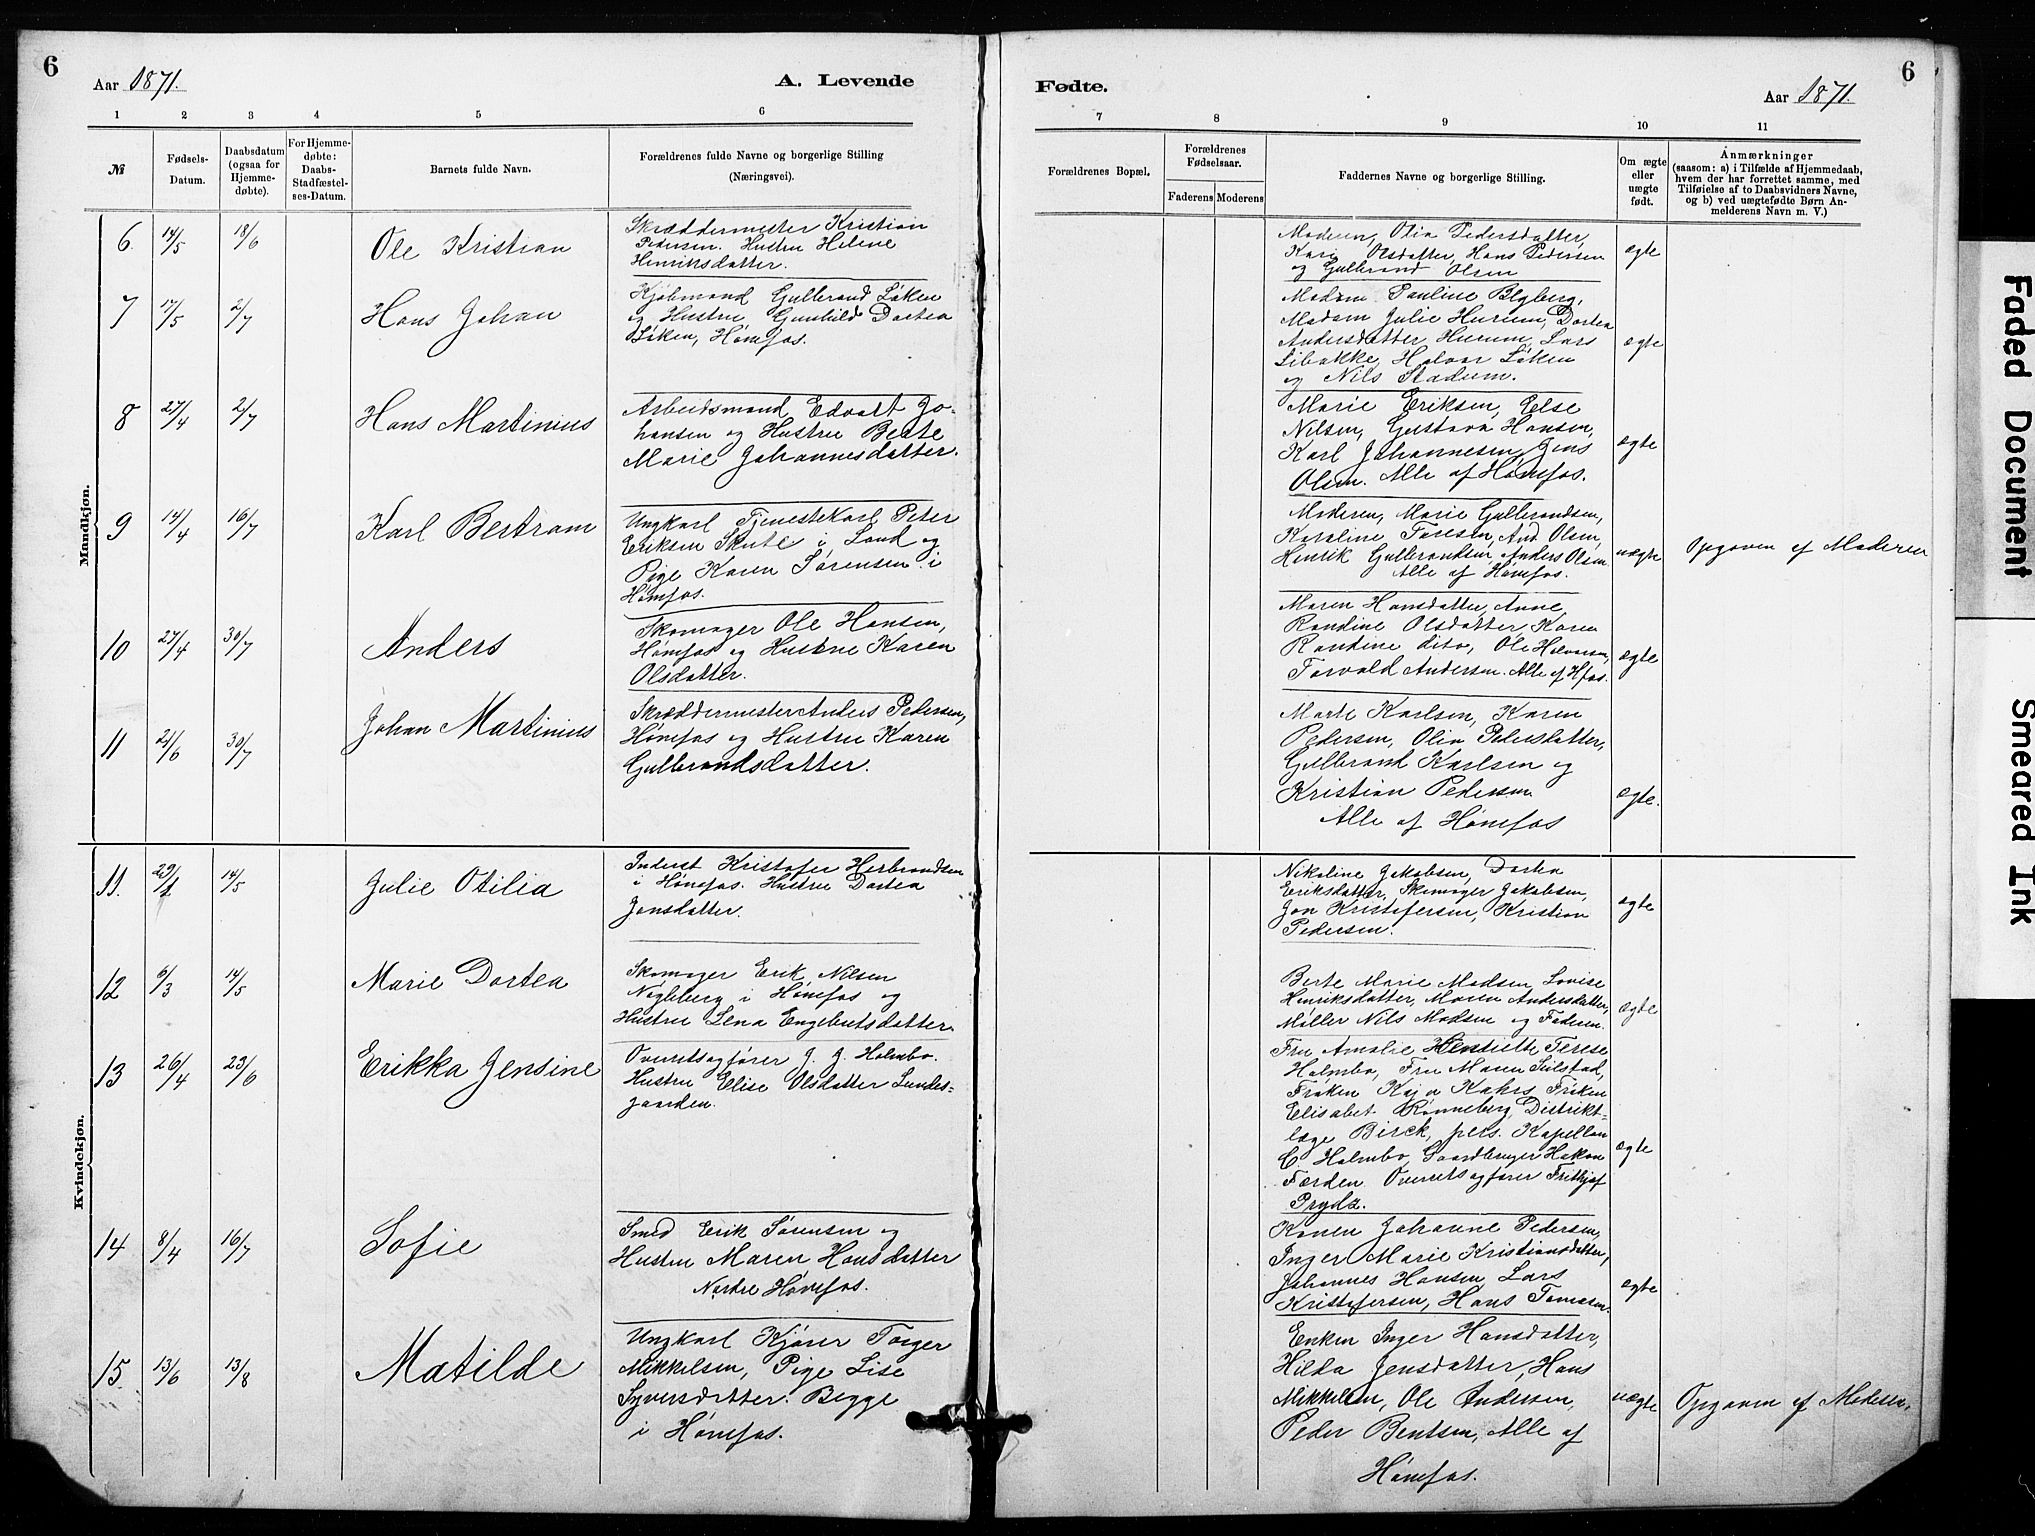 6
Aar 1871.
A. Levende
1 2 3 4 5 6
№
Fødsels-
Datum.
Daabsdatum
(ogsaa for
Hjemme-
døbte).
For Hjemme-
døbte:
Daabs-
Stadfæstel-
ses-Datum.
Barnets fulde Navn.
Forældrenes fulde Navne og borgerlige Stilling
(Næringsvei).
Mandkjøn.
6. 14/5 18/6 Ole Kristian
Skræddermester Kristian
Pedersen. Hustru Helene
Henriksdatter.
7 17/5 2/7 Hans Johan
Kjøbmand Gulbrand Løken
og Hustru Gunhild Dortea
Løken, Hønefos.
8 27/4 2/7 Hans Martinius
Arbeidsmand Edvart Jo-
hansen og Hustru Berte
Marie Johannesdatter.
9 14/4 16/7 Karl Bertram
Ungkarl Tjenestekarl Peter
Eriksen Skute i Land og
Pige Karen Sørensen i
Hønefos.
10 27/4 30/7 Anders
Skomager Ole Hansen,
Hønefos og Hustru Karen
Olsdatter.
11 21/6 30/7 Johan Martinius
Skræddermester Anders Pedersen,
Hønefos og Hustru Karen
Gulbrandsdatter.
Kvindekjøn.
11. 14/5 Julie Otilia
Inderst Kristofer Herbrandsen
i Hønefos. Hustru Dortea
Jonsdatter.
12 6/3 14/5 Marie Dortea
Skomager Erik Nilsen
Nøgleberg i Hønefos og
Hustru Lena Engebretsdatter.
13 26/4 23/6 Erikka Jensine
Overretssagfører J. J. Holmbo.
Hustru Elise Olsdatter Lundes-
gaarden.
14 8/4 16/7 Sofie
Smed Erik Sørensen og
Hustru Maren Hansdatter
Nordre Hønefos.
15 13/6 13/8 Matilde
Ungkarl Kjører Torger
Mikkelsen, Pige Lise
Syversdatter. Begge
i Hønefos.
Fødte.
Aar 1871.
6
7 8 9 10 11
Forældrenes Bopæl.
Forældrenes
Fødselsaar.
Faderens Moderens
Faddernes Navne og borgerlige Stilling.
Om ægte
eller
uægte
født.
Anmærkninger
(saasom: a) i Tilfælde af Hjemmedaab,
hvem der har forrettet samme, med
Tilføielse af to Daabsvidners Navne,
og b) ved uægtefødte Børn An-
melderens Navn m. V.)
Moderen, Olia Pedersdatter,
Kari Olsdatter, Hans Pedersen
og Gulbrand Olsen
ægte
Madam Pauline Blyberg,
Madam Julie Hurum, Dortea
Andersdatter Hurum, Lars
Libakke, Halvor Løken
og Nils Stadum.
ægte
Marie Eriksen, Else
Nilsen, Gustava Hansen,
Karl Johannesen, Jens
Olsen. Alle af Hønefos.
ægte
Moderen, Marie Gulbrandsen,
Karoline Toresen, And Olsen,
Henrik Gulbrandsen, Anders Olsen
Alle af Hønefos.
uægte Opgaven af Moderen
Maren Hansdatter, Anne
Randine Olsdatter, Karen
Randine dito, Ole Halvorsen,
Torvald Andersen. Alle af Hfos.
ægte
Marte Karlsen, Karen
Pedersen, Olia Pedersdatter,
Gulbrand Karlsen og
Kristian Pedersen
Alle af Hønefos
ægte.
Nikoline Jakobsen, Dortea
Eriksdatter, Skomager Jakobsen,
Jon Kristofersen, Kristian
Pedersen.
ægte
Berte Marie Madsen, Lovise
Henriksdatter, Maren Andersdatter,
Møller Nils Madsen og Faderen.
ægte
Fru Amalie Henriette Terese
Holmbo, Fru Maren Seilstad,
Frøken Kaja Kahrs, Frøken
Elisabet Rønneberg, Distrikt-
læge Birck, pers. Kapellan
C. Holmbo, Gaardbruger Hakon
Færden Overretssagfører Frithjof
Prydz.
ægte
Konen Johanne Pedersen,
Inger Marie Kristiansdatter,
Johannes Hansen, Lars
Kristofersen, Hans Tomesen.
ægte
Enken Inger Hansdatter,
Hilda Jensdatter, Hans
Mikkelsen, Ole Andersen,
Peder Bentsen, Alle af
Hønefos.
uægte Opgaven af Moderen.
Faded Document
Smeared Ink